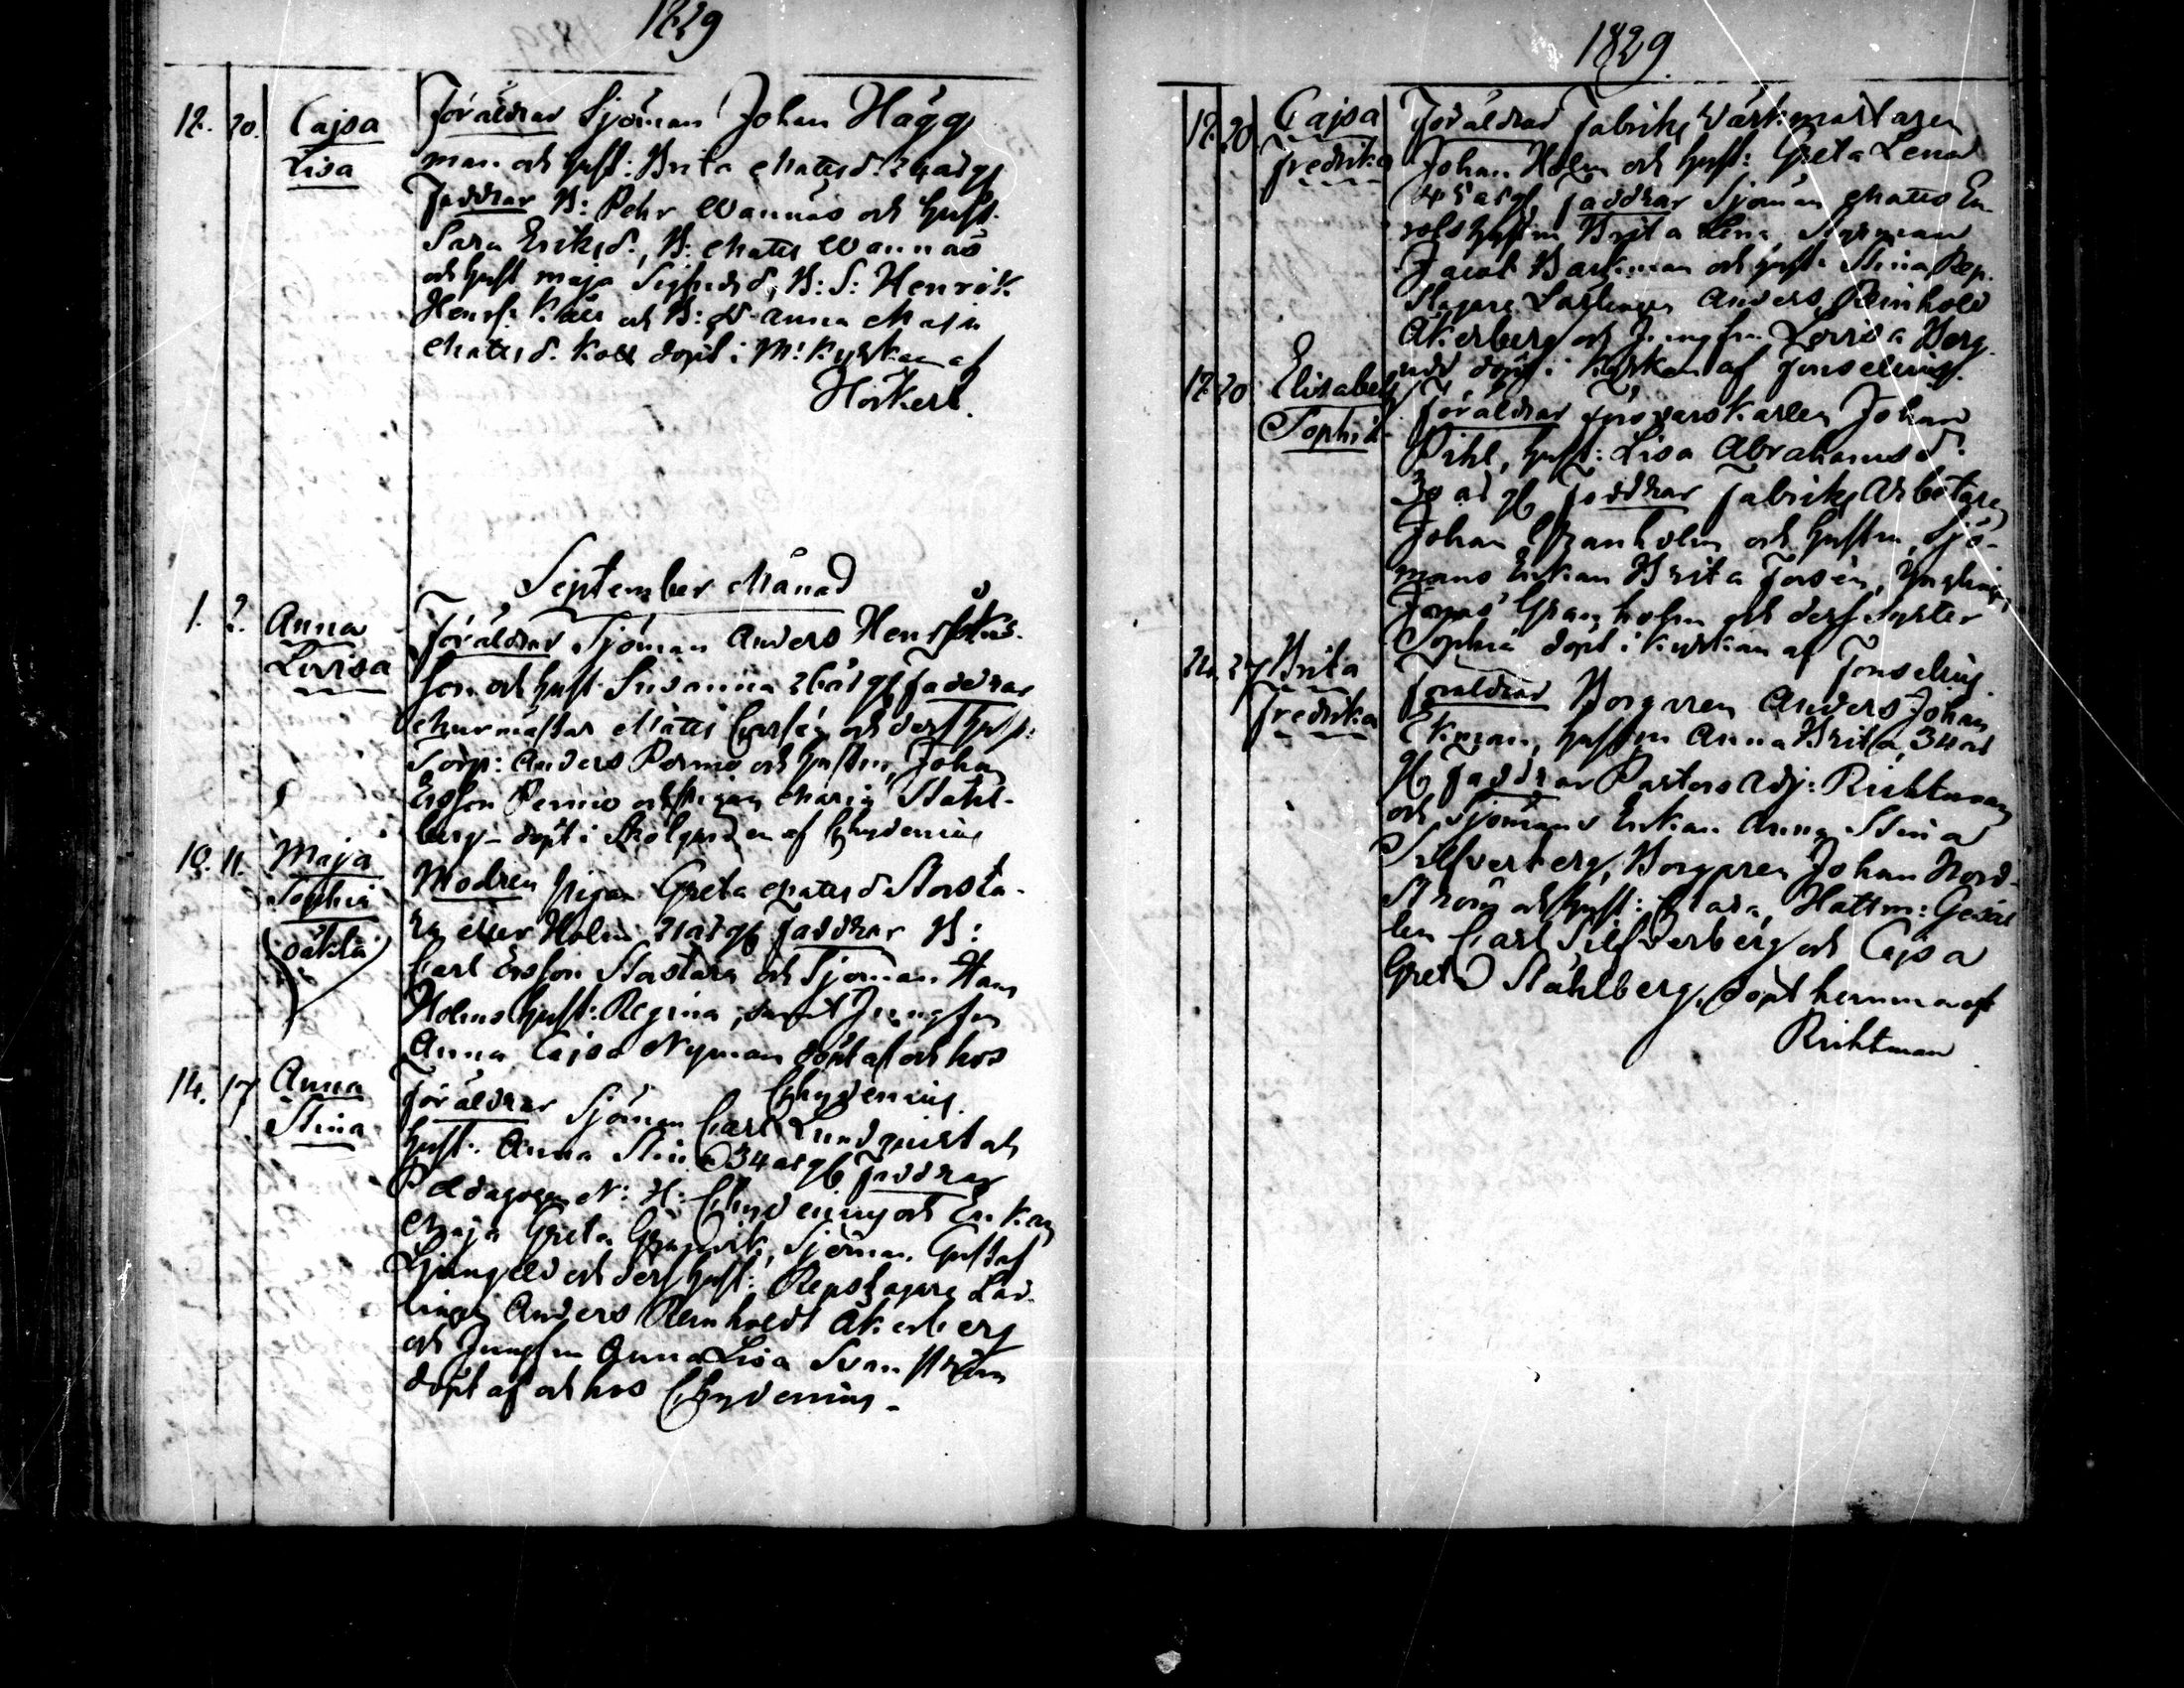 1829
12. 20. Cajsa Lisa
Föräldrar Sjöman Johan Hägg
man och hust: Brita Matesd. 24 år gl
Faddrar B: Pehr Wannäs och hust.
Sara Eriksd., B: Mates Wannäs
och hust Maja Sigfredsd, B: S: Henrik
Henrs. och B: D. Anna Maja
Matesd. döpt i kyrkan af
Höckert.
September Månad
1. 2. Anna Lovisa
Föräldrar Sjöman Anders Henriks
son och hust Susanna 26 år gl Faddrar
Murmästar Mattes och dess hust:
Torp: Anders Permo och hustru, Johan
Ersson Permo och pigan Maria Stahl-
berg - döpt i Skolgården af Chydenius
10. 11. Maja Sophia (oäkta)
Modren pigan Greta Matesd Storsta-
ra eller Holm 21 år gl Faddrar B:
Carl Ersson Storstara och Sjöman Hans
Holms hust: Regina, samt Jungfru
Anna Cajsa Nyman döpt af och hos
Chydenius.
14. 17 Anna Stina
Föräldrar Sjöman Carl Lundquist och
hust. Anna Stina 34 år gl Faddrar
Pædagogen N: H: Chydenius och Enkan
Maja Greta Granvik, Sjöman Gustaf
Ljungeld och dess hust: Repslagare Lär-
lingen Anders Reinholdt Åkerberg
och Jungfru Anna Lisa Svanström
döpt af och hos Chydenius -
1829.
12. 20 Cajsa Fredrika
Föräldrar Fabriks Wärkmästaren
Johan Holm och hust: Greta Lena
45 år gl, faddrar Sjöman Mattes En
rots hustru Brita Lena, Sjöman
Jacob Backman och hust: Stina Rep.
Slagare Lärlingen Anders Reinhold
Åkerberg och Jungfru Lovisa Berg
döpt i kyrkan af Fonselius.
12 20 Elisabeth Sophia
Föräldrar Johan
Pihl, hust: Lisa Abrahamsd.
30 år gl Faddrar Fabriks Arbetaren
Johan Granholm och hustru, Sjö-
mans Enkan Brita Forsén, Ynglingen
Jonas Granholm och dess Syster
Sophia döpt i kyrkan af
Fonselius.
24. 27 Brita Fredrika
Föräldrar Borgaren Anders Johan
Ekman, hustru Anna Brita, 34 år
gl, Faddrar Pastors Adj: Richtman
och Sjömans Enkan Anna Stina
Silfverberg, Borgaren Johan Nord-
ström och hust: Clara, Hattm: Gesäl
len Carl Silfverberg och Cajsa
Greta Ståhlberg, döpt hemma af
Richtman